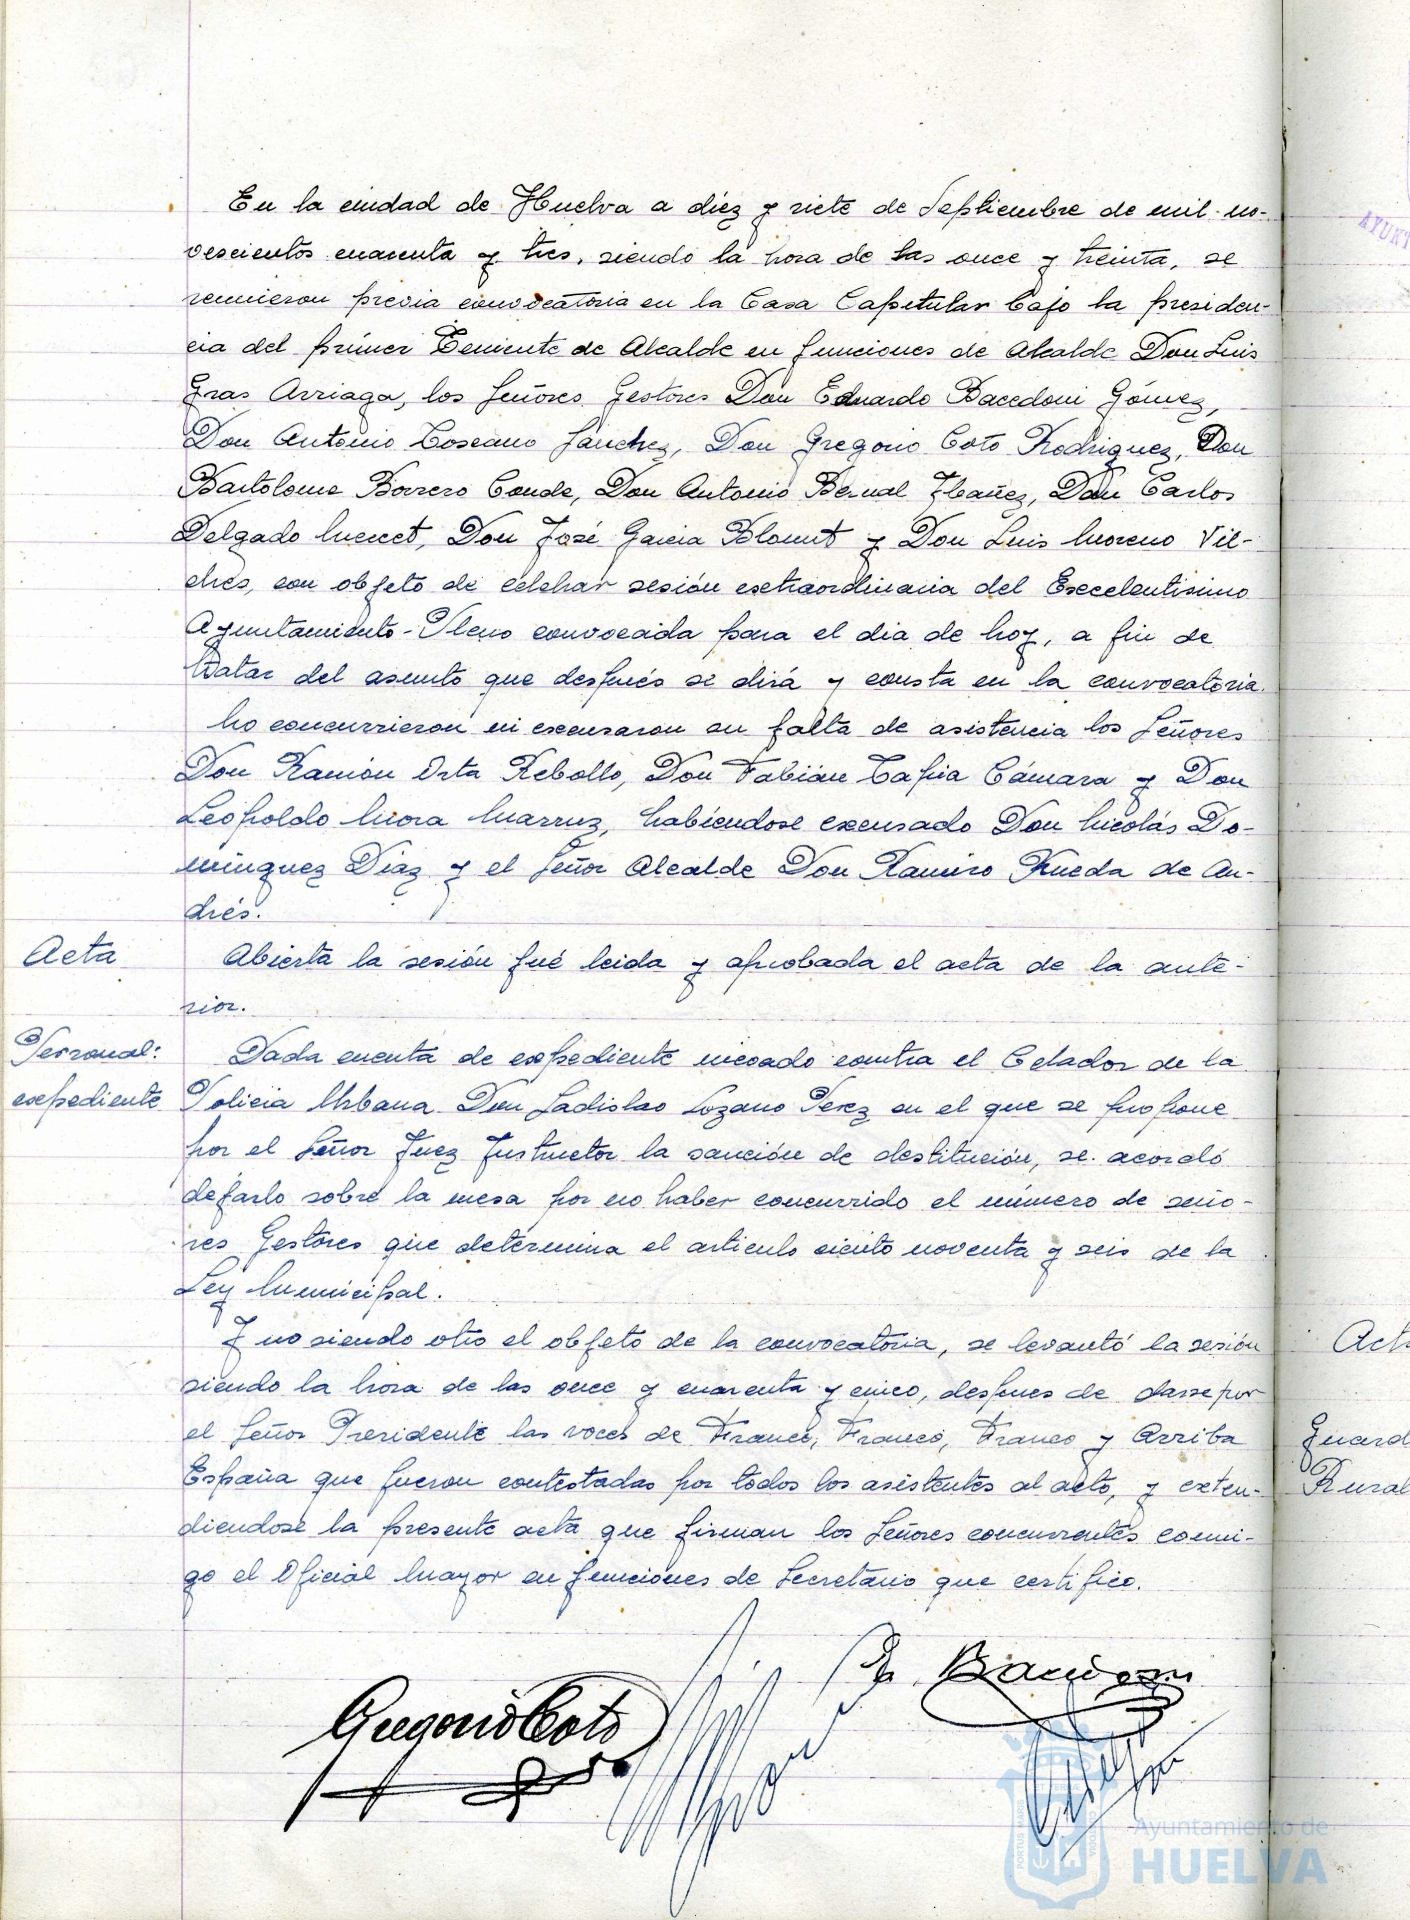 En la ciudad de Huelva a diez y siete de Septiembre de mil no-
vescientos cuarenta y tres, siendo la hora de las once y treinta, se
reunieron previa convocatoria en la Casa Capitular bajo la presiden-
cia del primer Teniente de Alcalde en funciones de Alcalde Don Luis
Gras Arriaga, los Señores Gestores Don Eduardo Bacedoni Gómez,
Don Antonio Toscano Sanchez, Don Gregorio Coto Rodriguez, Don
Bartolome Borrero Conde, Don Antonio Bernal Ibañez, Don Carlos
Delgado Mercet, Don José Garcia Blount y Don Luis Moreno Vil-
ches, con objeto de celebrar sesión extraordinaria del Excelentisimo
Ayuntamiento-Pleno convocada para el dia de hoy, a fin de
tratar del asunto que después se dirá y consta en la convocatoria.
No concurrieron ni excusaron su falta de asistencia los Señores
Don Ramón Orta Rebollo, Don Fabián Tapia Cámara y Don
Leopoldo Mora Marruz, habiéndose excusado Don Nicolás Do-
minguez Diaz y el Señor Alcalde Don Ramiro Rueda de An-
drés.
Acta
Abierta la sesión fué leida y aprobada el acta de la ante-
rior.
Personal:
expediente
Dada cuenta de expediente incoado contra el Celador de la
Policia Urbana Don Ladislao Lozano Perez en el que se propone
por el Señor Juez Instructor la sanción de destitución, se acordó
dejarlo sobre la mesa por no haber concurrido el número de seño-
res Gestores que determina el articulo ciento noventa y seis de la
Ley Municipal.
Y no siendo otro el objeto de la convocatoria, se levantó la sesión
siendo la hora de las once y cuarenta y cinco, despues de darse por
el Señor Presidente las voces de Franco, Franco, Franco y Arriba
España que fueron contestadas por todos los asistentes al acto, y exten-
diendose la presente acta que firman los Señores concurrentes conmi-
go el Oficial Mayor en funciones de Secretario que certifico.
Gregorio Coto
E. Bacedoni
AYUNT
Act
Guard
Rural
PORTUS MARIS
Ayuntamiento de
HUELVA